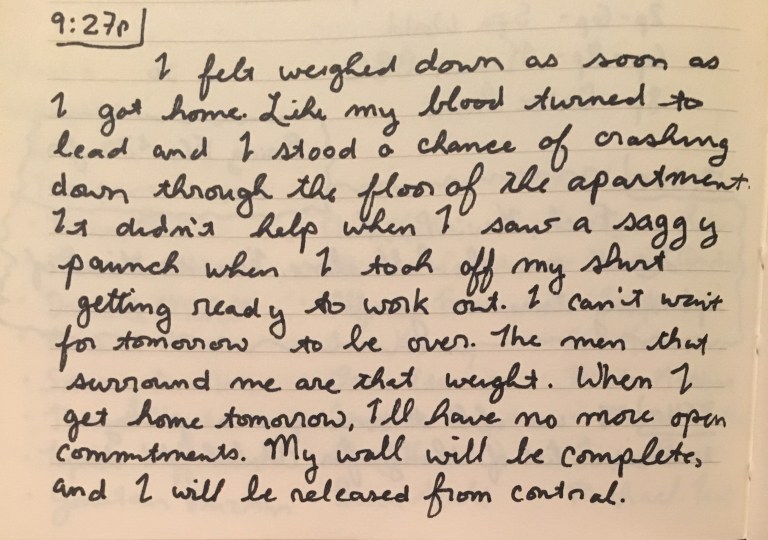 9:27p
I felt weighed down as soon as
I got home. Like my blood turned to
lead and I stood a chance of crashing
down through the floor of the apartment.
It didn't help when I saw a saggy
paunch when I took off my shirt
getting ready to work out. I can't wait
for tomorrow to be over. The men that
surround me are that weight. When I
get home tomorrow, I'll have no more open
commitments. My wall will be complete,
and I will be released from control.